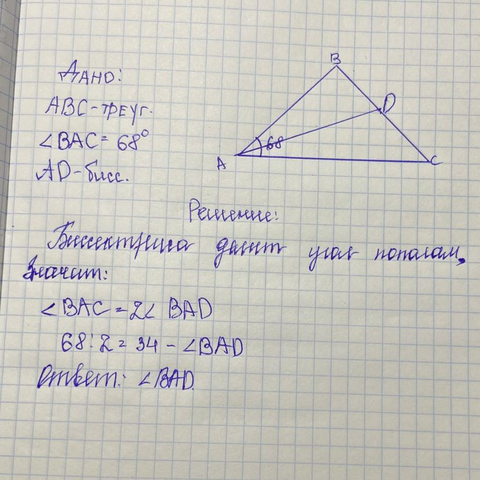 Дано:
B
ABC-треуг.
D
∠BAC = 68°
68
A
C
AD-бисс.
Решение:
Биссектриса делит угол пополам,
значит:
∠BAC = 2∠ BAD
68:2 = 34 - ∠BAD
Ответ: ∠BAD.